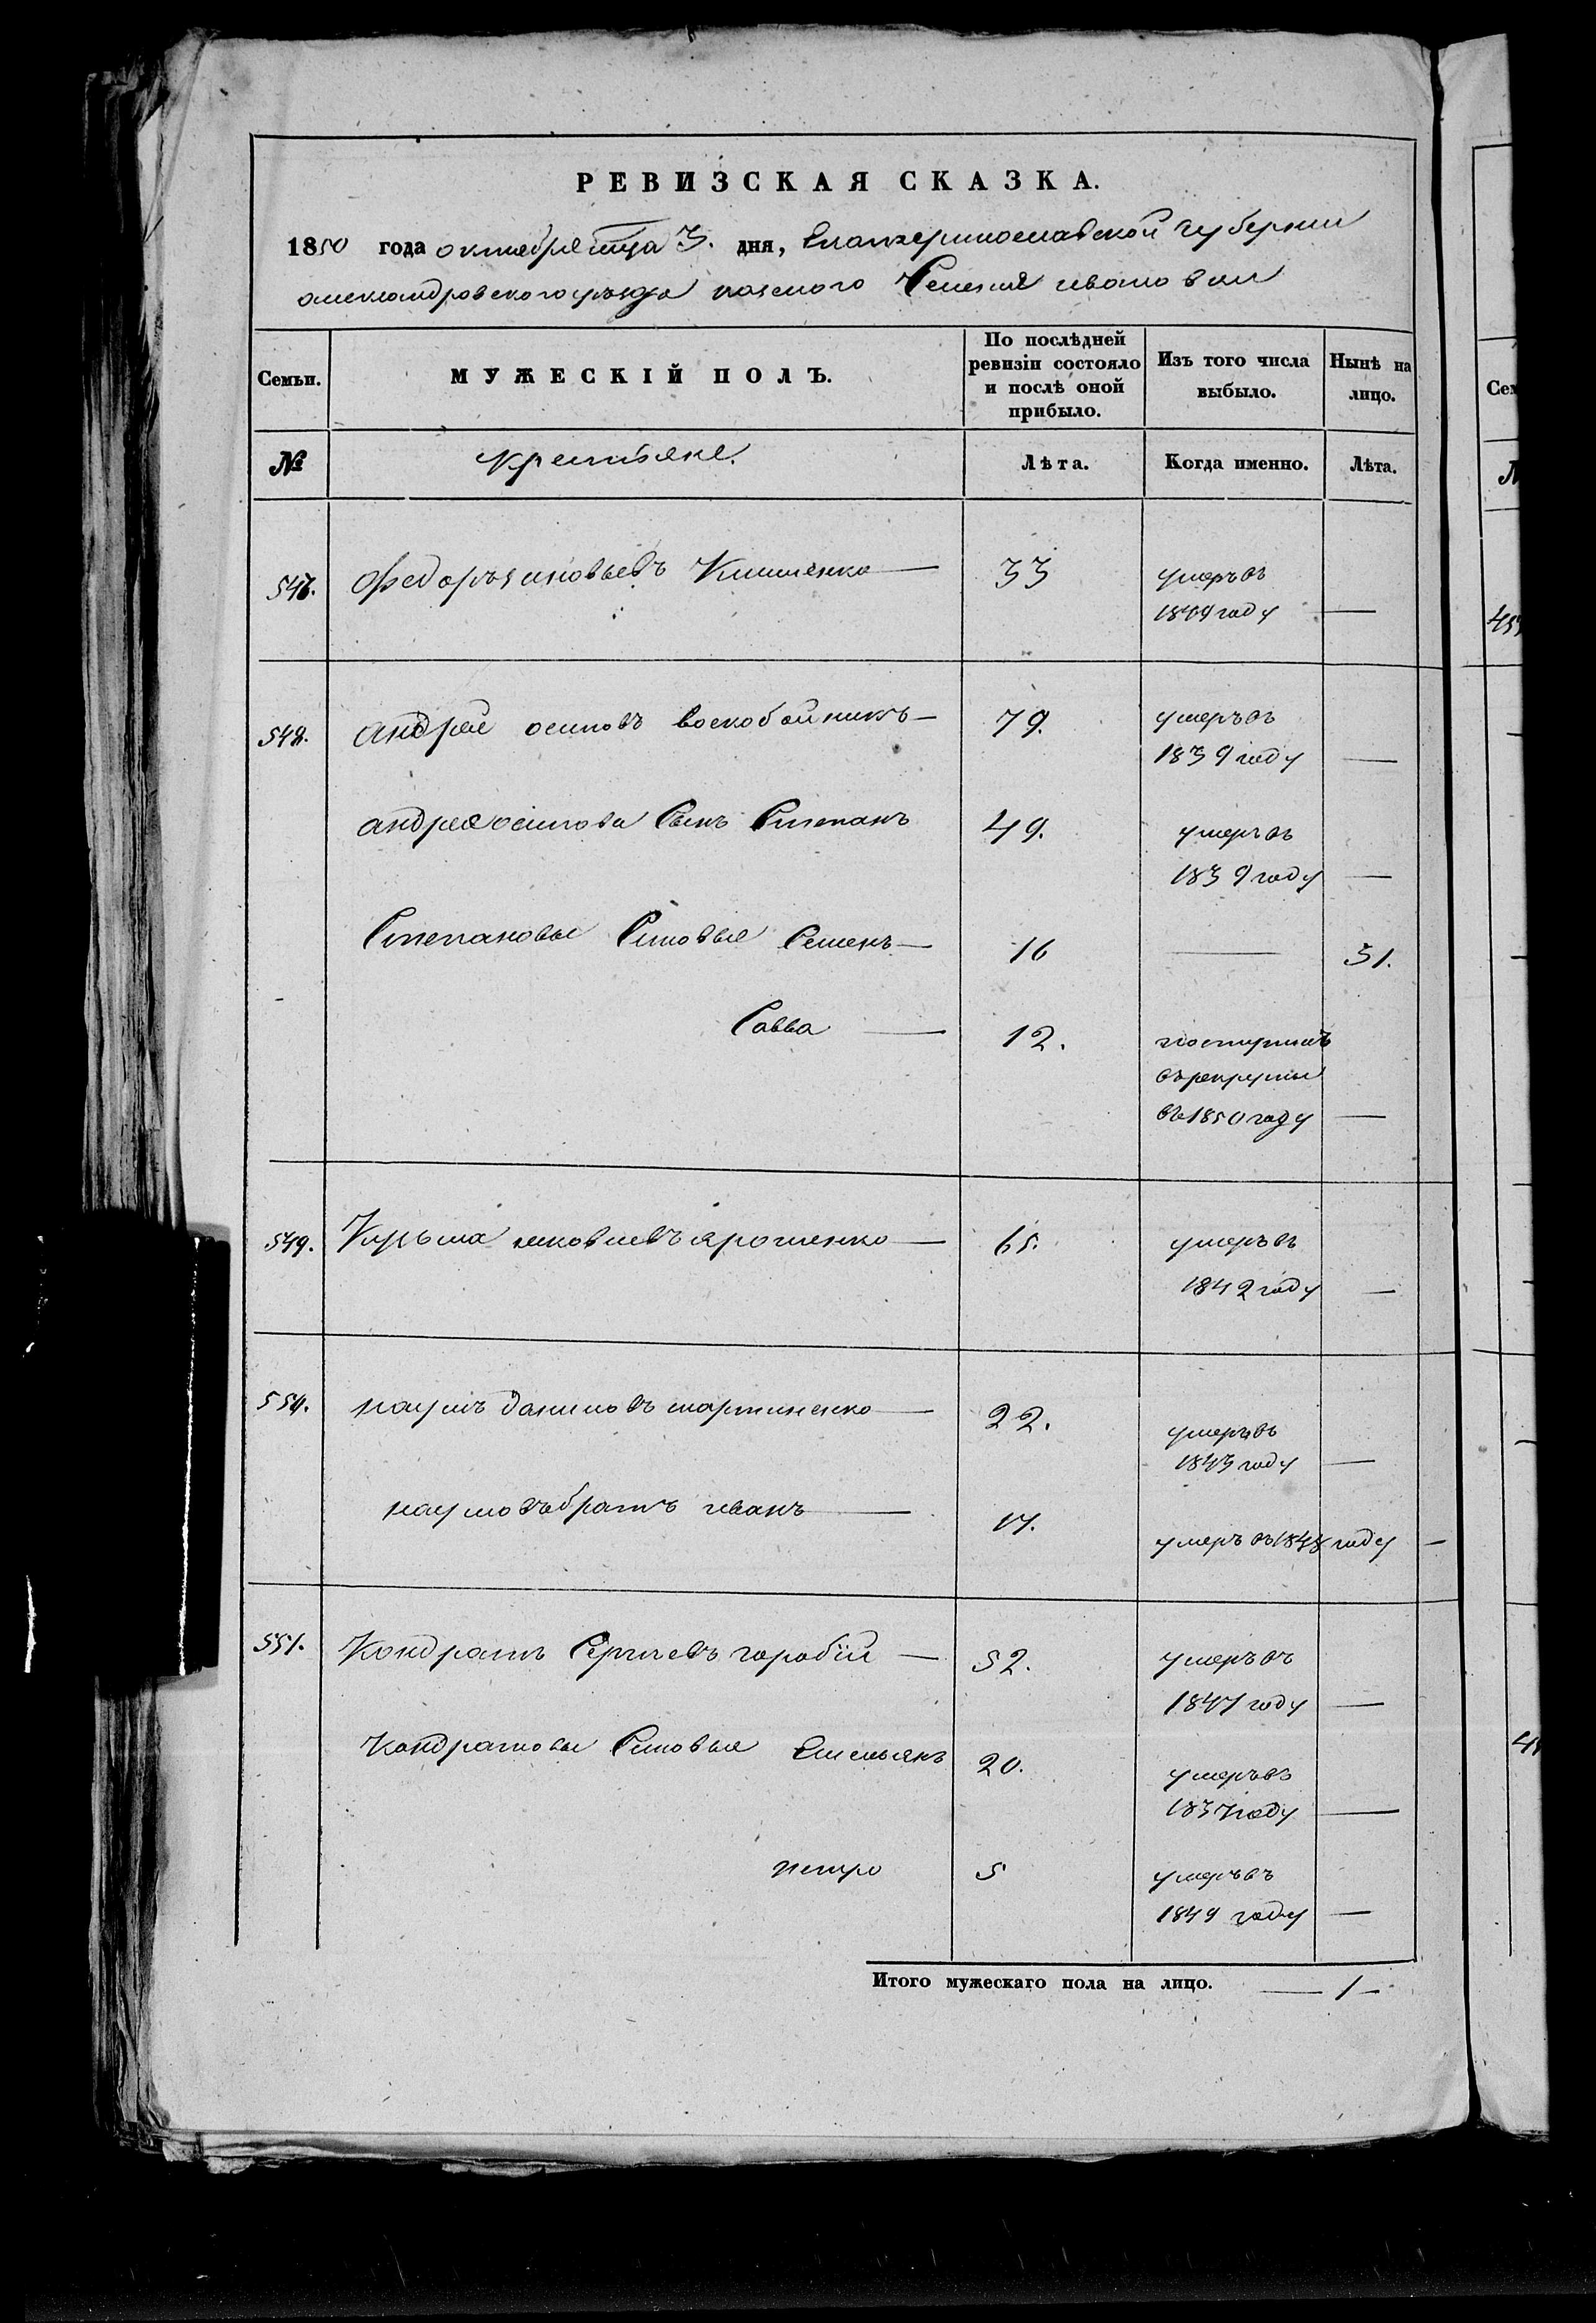 РЕВИЗСКАЯ СКАЗКА.
1850 года октября мца 3. дня, Екатеринославской губернии
александровского уезда казеного Селения ивановки
Семьи.
МУЖЕСКІЙ ПОЛЪ.
По послѣдней ревизіи состояло и послѣ оной прибыло.
Изъ того числа выбыло.
Нынѣ на лицо.
№
крестьяне.
Лѣта.
Когда именно.
Лѣта.
547. Федоръ 33 умеръ въ
1849 году —
548. андрей осиповъ воскобойникъ — 79. умеръ въ
1839 году —
андрея осипова Сынъ Степанъ 49. умеръ въ
1839 году —
Степановы Синовья Семенъ — 16 — 31.
Савва — 12. поступилъ
въ рекруты
въ 1850 году —
549. ярошенко — 65. умеръ въ
1842 году —
550. наумъ даниловъ мартиненко — 22. умеръ въ
1843 году —
наумовъ братъ иванъ — 17. умеръ въ 1848 году —
551. Кондратъ Сергѣевъ горобїй — 52. умеръ въ
1847 году —
Кондратовы Синовья Емельянъ 20. умеръ въ
1837 году —
петро 5 умеръ въ
1849 году —
Итого мужескаго пола на лицо. — 1 —